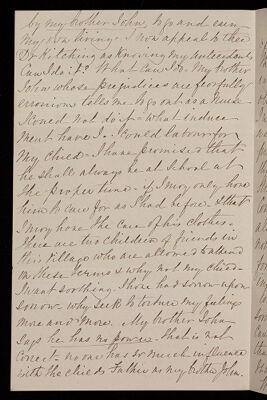 by my brother John, to go and earn
my own living. I now appeal to thee
Dr Kitching as knowing my antecedents
Can I do it? What can I do. My brother
John whose prejudices are fearfully
erroneous tells me to go out as a nurse
I could not do it - what induce-
ment have I. I could labour for
my child. I have promised that
he shall always be at School at
the proper time - if I may only have
him to care for as I had before & that
I may have the care of his clothes.
There are two children of friends in
this village who are allowed to attend
on these terms & why not my child.
I want soothing. I have had sorrow upon
sorrow - why seek to torture my feelings
more and more. My brother John
says he has no power. That is not
correct - no one has so much influence
with the child's Father as my brother John.